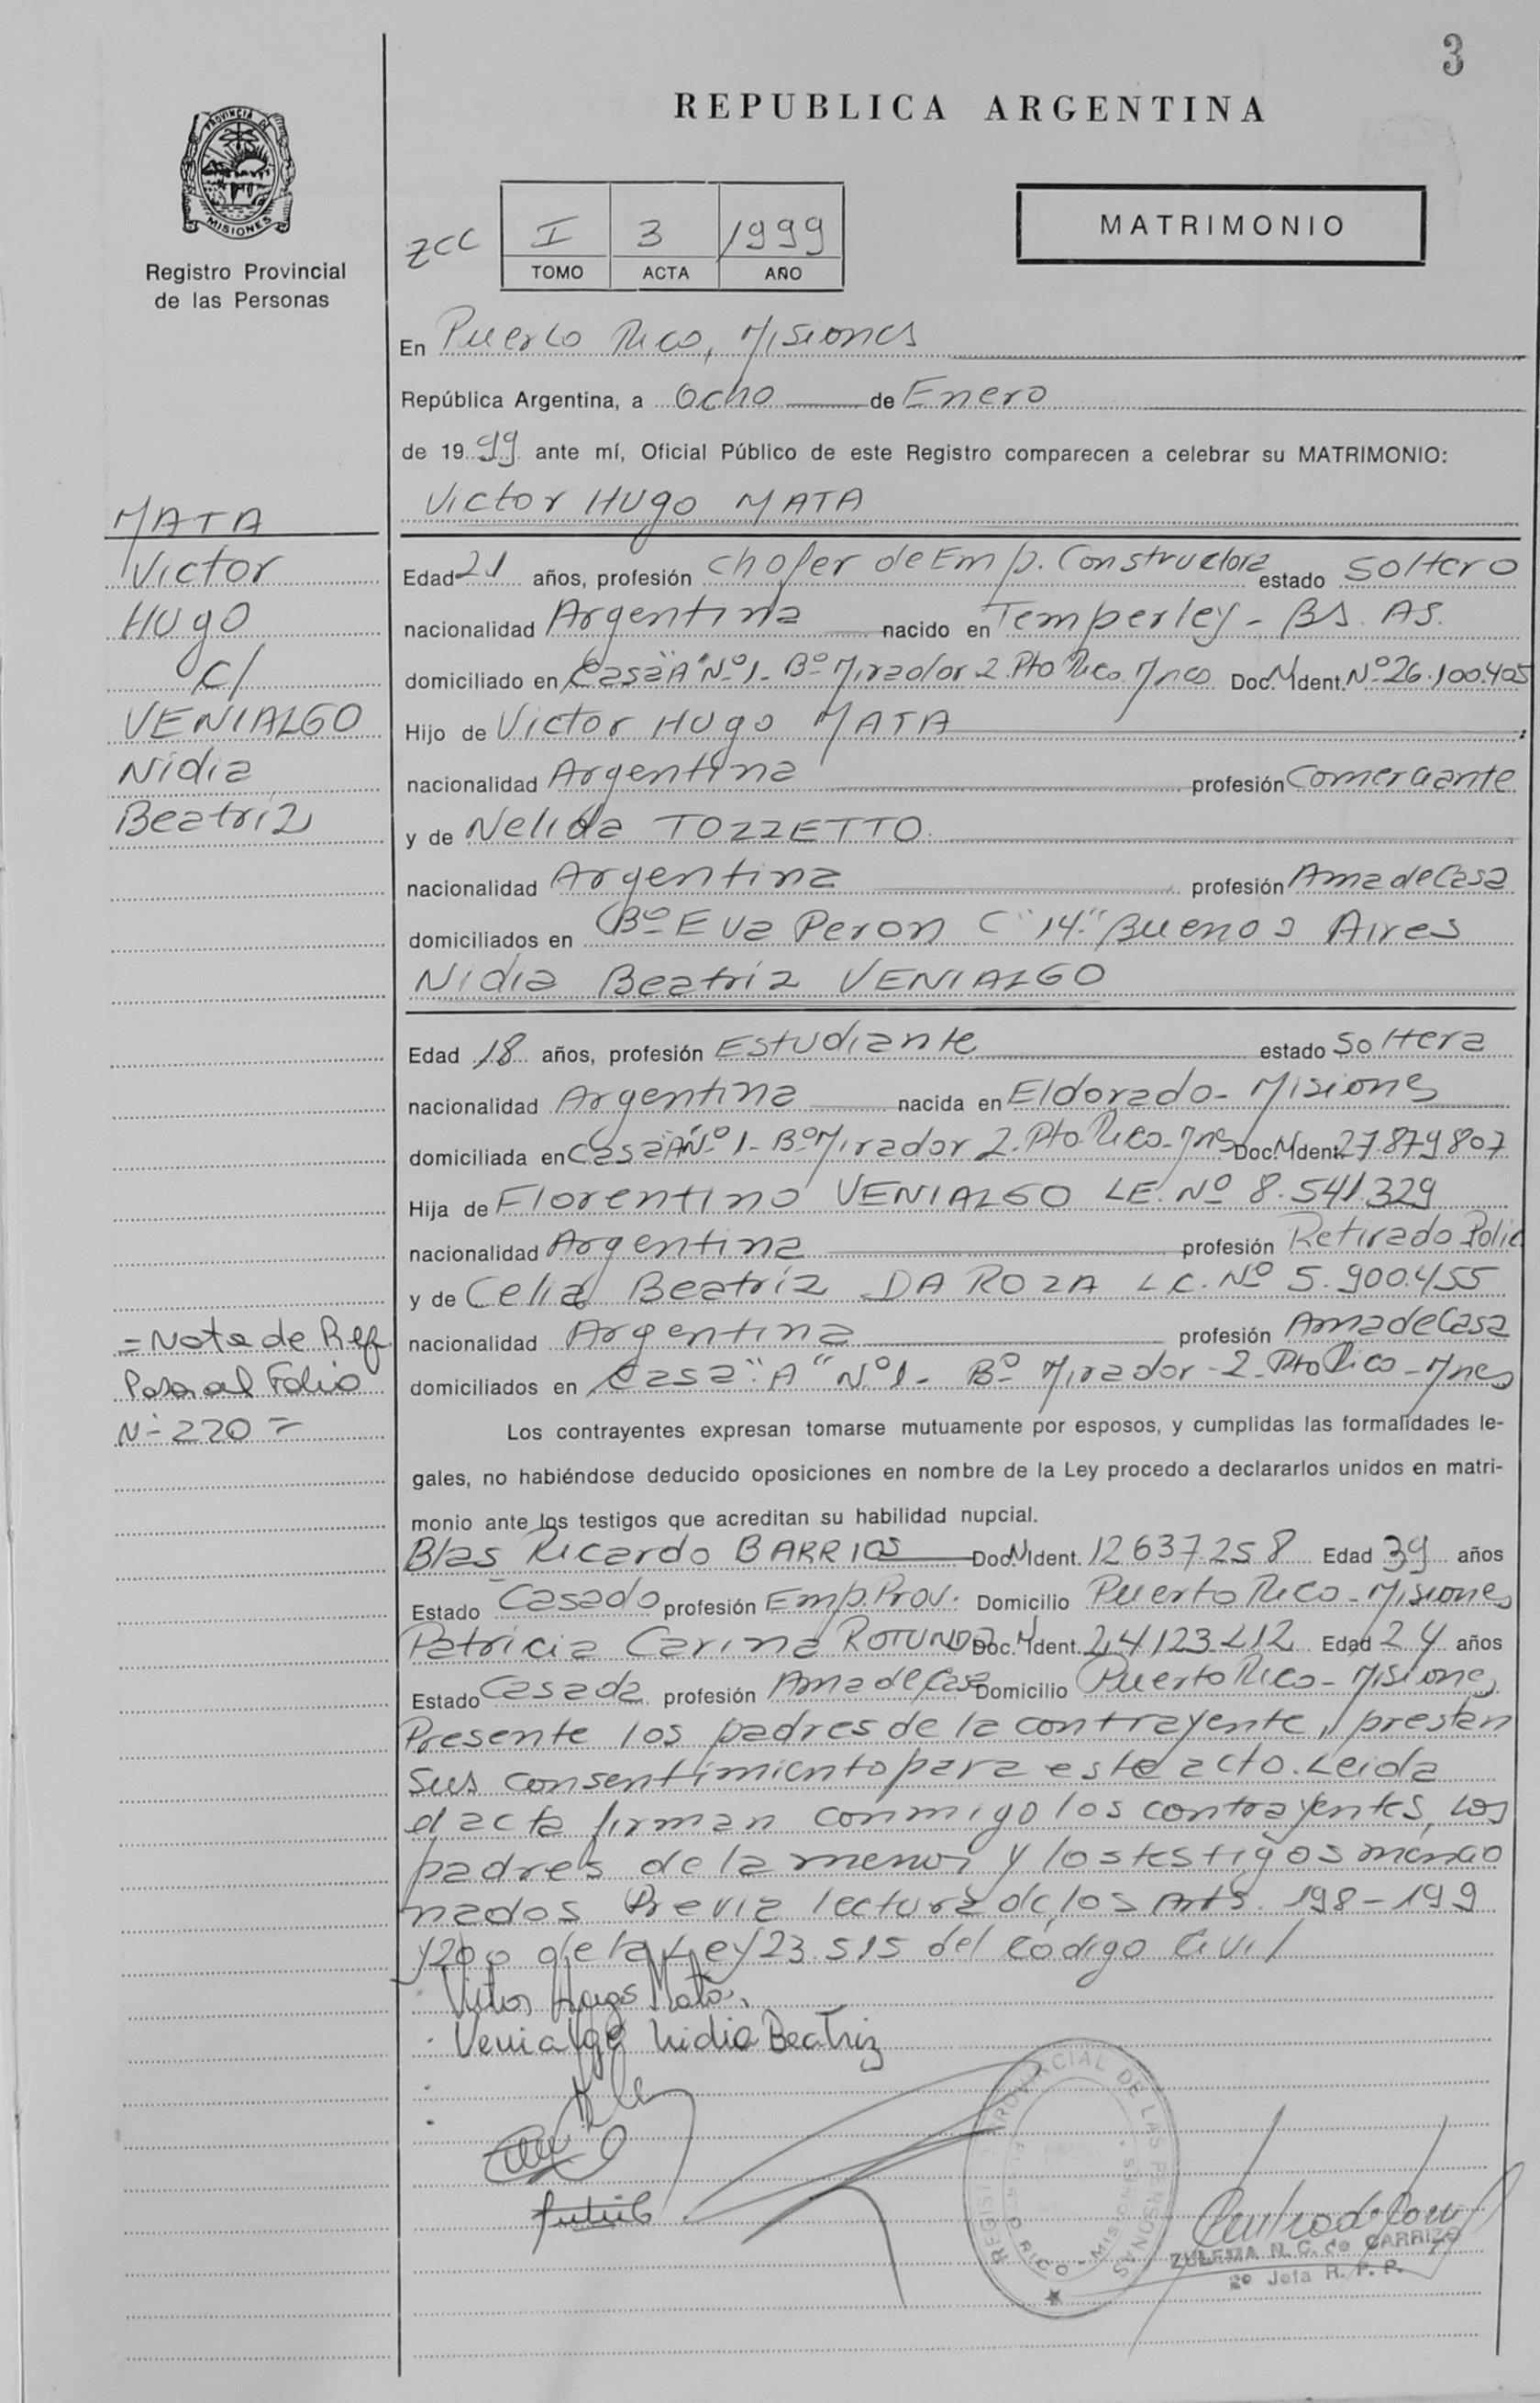 3
REPUBLICA ARGENTINA
PROVINCIA DE
MISIONES
Registro Provincial
de las Personas
ZCC
I 3 1999
TOMO ACTA AÑO
MATRIMONIO
En Puerto Rico, Misiones
República Argentina, a Ocho de Enero
de 1999 ante mí, Oficial Público de este Registro comparecen a celebrar su MATRIMONIO:
Victor Hugo MATA
MATA
Victor
Hugo
c/
VENIALGO
Nidia
Beatríz
Edad 21 años, profesión chofer de Emp. Constructora estado Soltero
nacionalidad Argentina nacido en Temperley - BS. AS.
domiciliado en Casa "A" Nº 1 - Bº Mirador 2. Pto Rico. Mnes Doc. N. Ident. Nº 26.100.405
Hijo de Victor Hugo MATA
nacionalidad Argentina profesión Comerciante
y de Nelida TOZZETTO.
nacionalidad Argentina profesión Ama de Casa
domiciliados en Bº Eva Peron C "14" Buenos Aires
Nidia Beatríz VENIALGO
Edad 18 años, profesión Estudiante estado Soltera
nacionalidad Argentina nacida en Eldorado - Misiones
domiciliada en Casa "A" Nº 1 - Bº Mirador 2. Pto Rico - Mnes Doc. N. Ident. 27.879.807
Hija de Florentino VENIALGO LE. Nº 8.541.329
nacionalidad Argentina profesión Retirado Polic
y de Celia Beatríz DA ROZA L.C. Nº 5.900.455
nacionalidad Argentina profesión Ama de Casa
domiciliados en Casa "A" Nº 1 - Bº Mirador - 2 - Pto Rico - Mnes
= Nota de Ref
Pasa al Folio
Nº 220 =
Los contrayentes expresan tomarse mutuamente por esposos, y cumplidas las formalidades le-
gales, no habiéndose deducido oposiciones en nombre de la Ley procedo a declararlos unidos en matri-
monio ante los testigos que acreditan su habilidad nupcial.
Blas Ricardo BARRIOS Doc. N. Ident. 12637.258 Edad 39 años
Estado Casado profesión Emp. Prov. Domicilio Puerto Rico - Misiones
Patricia Carina ROTUNDA Doc. N. Ident. 24123212 Edad 24 años
Estado Casada profesión Ama de Casa Domicilio Puerto Rico - Misiones
Presente los padres de la contrayente, prestan
sus consentimiento para este acto. Leida
el acta firman conmigo los contrayentes, los
padres de la menor y los testigos mencio
nados Previa lectura de los Arts. 198 - 199
y 200 de la Ley 23.515 del Código Civil
Victor Hugo Mata.
Venialgo Nidia Beatriz
REGISTRO PROVINCIAL DE LAS PERSONAS
PUERTO RICO - MISIONES
ZULEMA N. C. de CARRIZO
2º Jefa R. P. P.